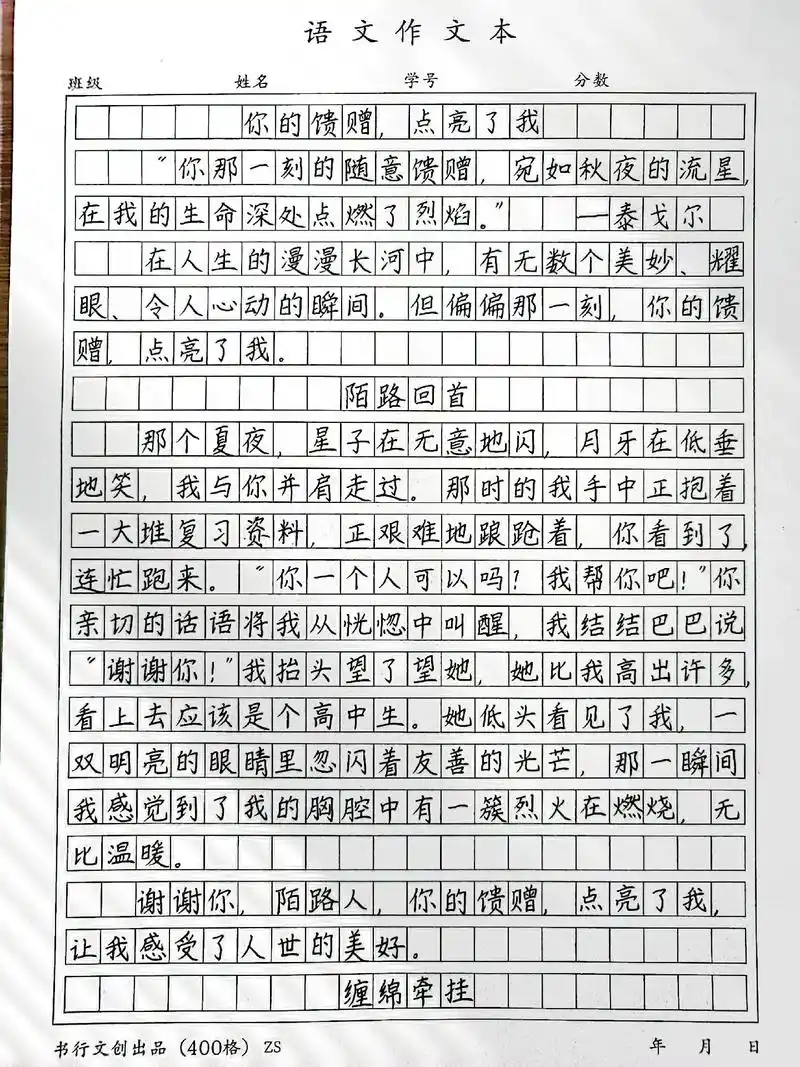 语文作文本
班级 姓名 学号 分数
你的馈赠，点亮了我
“你那一刻的随意馈赠，宛如秋夜的流星，
在我的生命深处点燃了烈焰。” ——泰戈尔
在人生的漫漫长河中，有无数个美妙、耀
眼、令人心动的瞬间。但偏偏那一刻，你的馈
赠，点亮了我。
陌路回首
那个夏夜，星子在无意地闪，月牙在低垂
地笑，我与你并肩走过。那时的我手中正抱着
一大堆复习资料，正艰难地踉跄着，你看到了，
连忙跑来。“你一个人可以吗？我帮你吧！”你
亲切的话语将我从恍惚中叫醒，我结结巴巴说
“谢谢你！”我抬头望了望她，她比我高出许多，
看上去应该是个高中生。她低头看见了我，一
双明亮的眼睛里忽闪着友善的光芒，那一瞬间
我感觉到了我的胸腔中有一簇烈火在燃烧，无
比温暖。
谢谢你，陌路人，你的馈赠，点亮了我，
让我感受了人世的美好。
缠绵牵挂
书行文创出品（400格）ZS 年 月 日